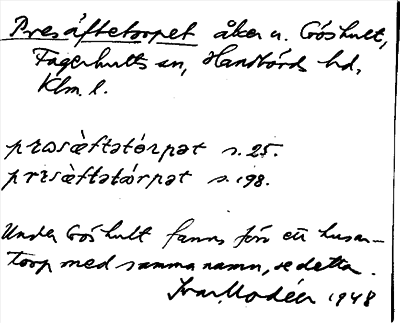 Presäftetorpet åker u. Göshult,
Fagerhults sn, Handbörds hd,
Klm. l.
prɯsä̀ftətórpət s. 25.
prɛsä̀ftətɷ́rpət s. 198.
Under Göshult fanns förr ett husar-
torp med samma namn, se detta.
Ivar Modéer 1948